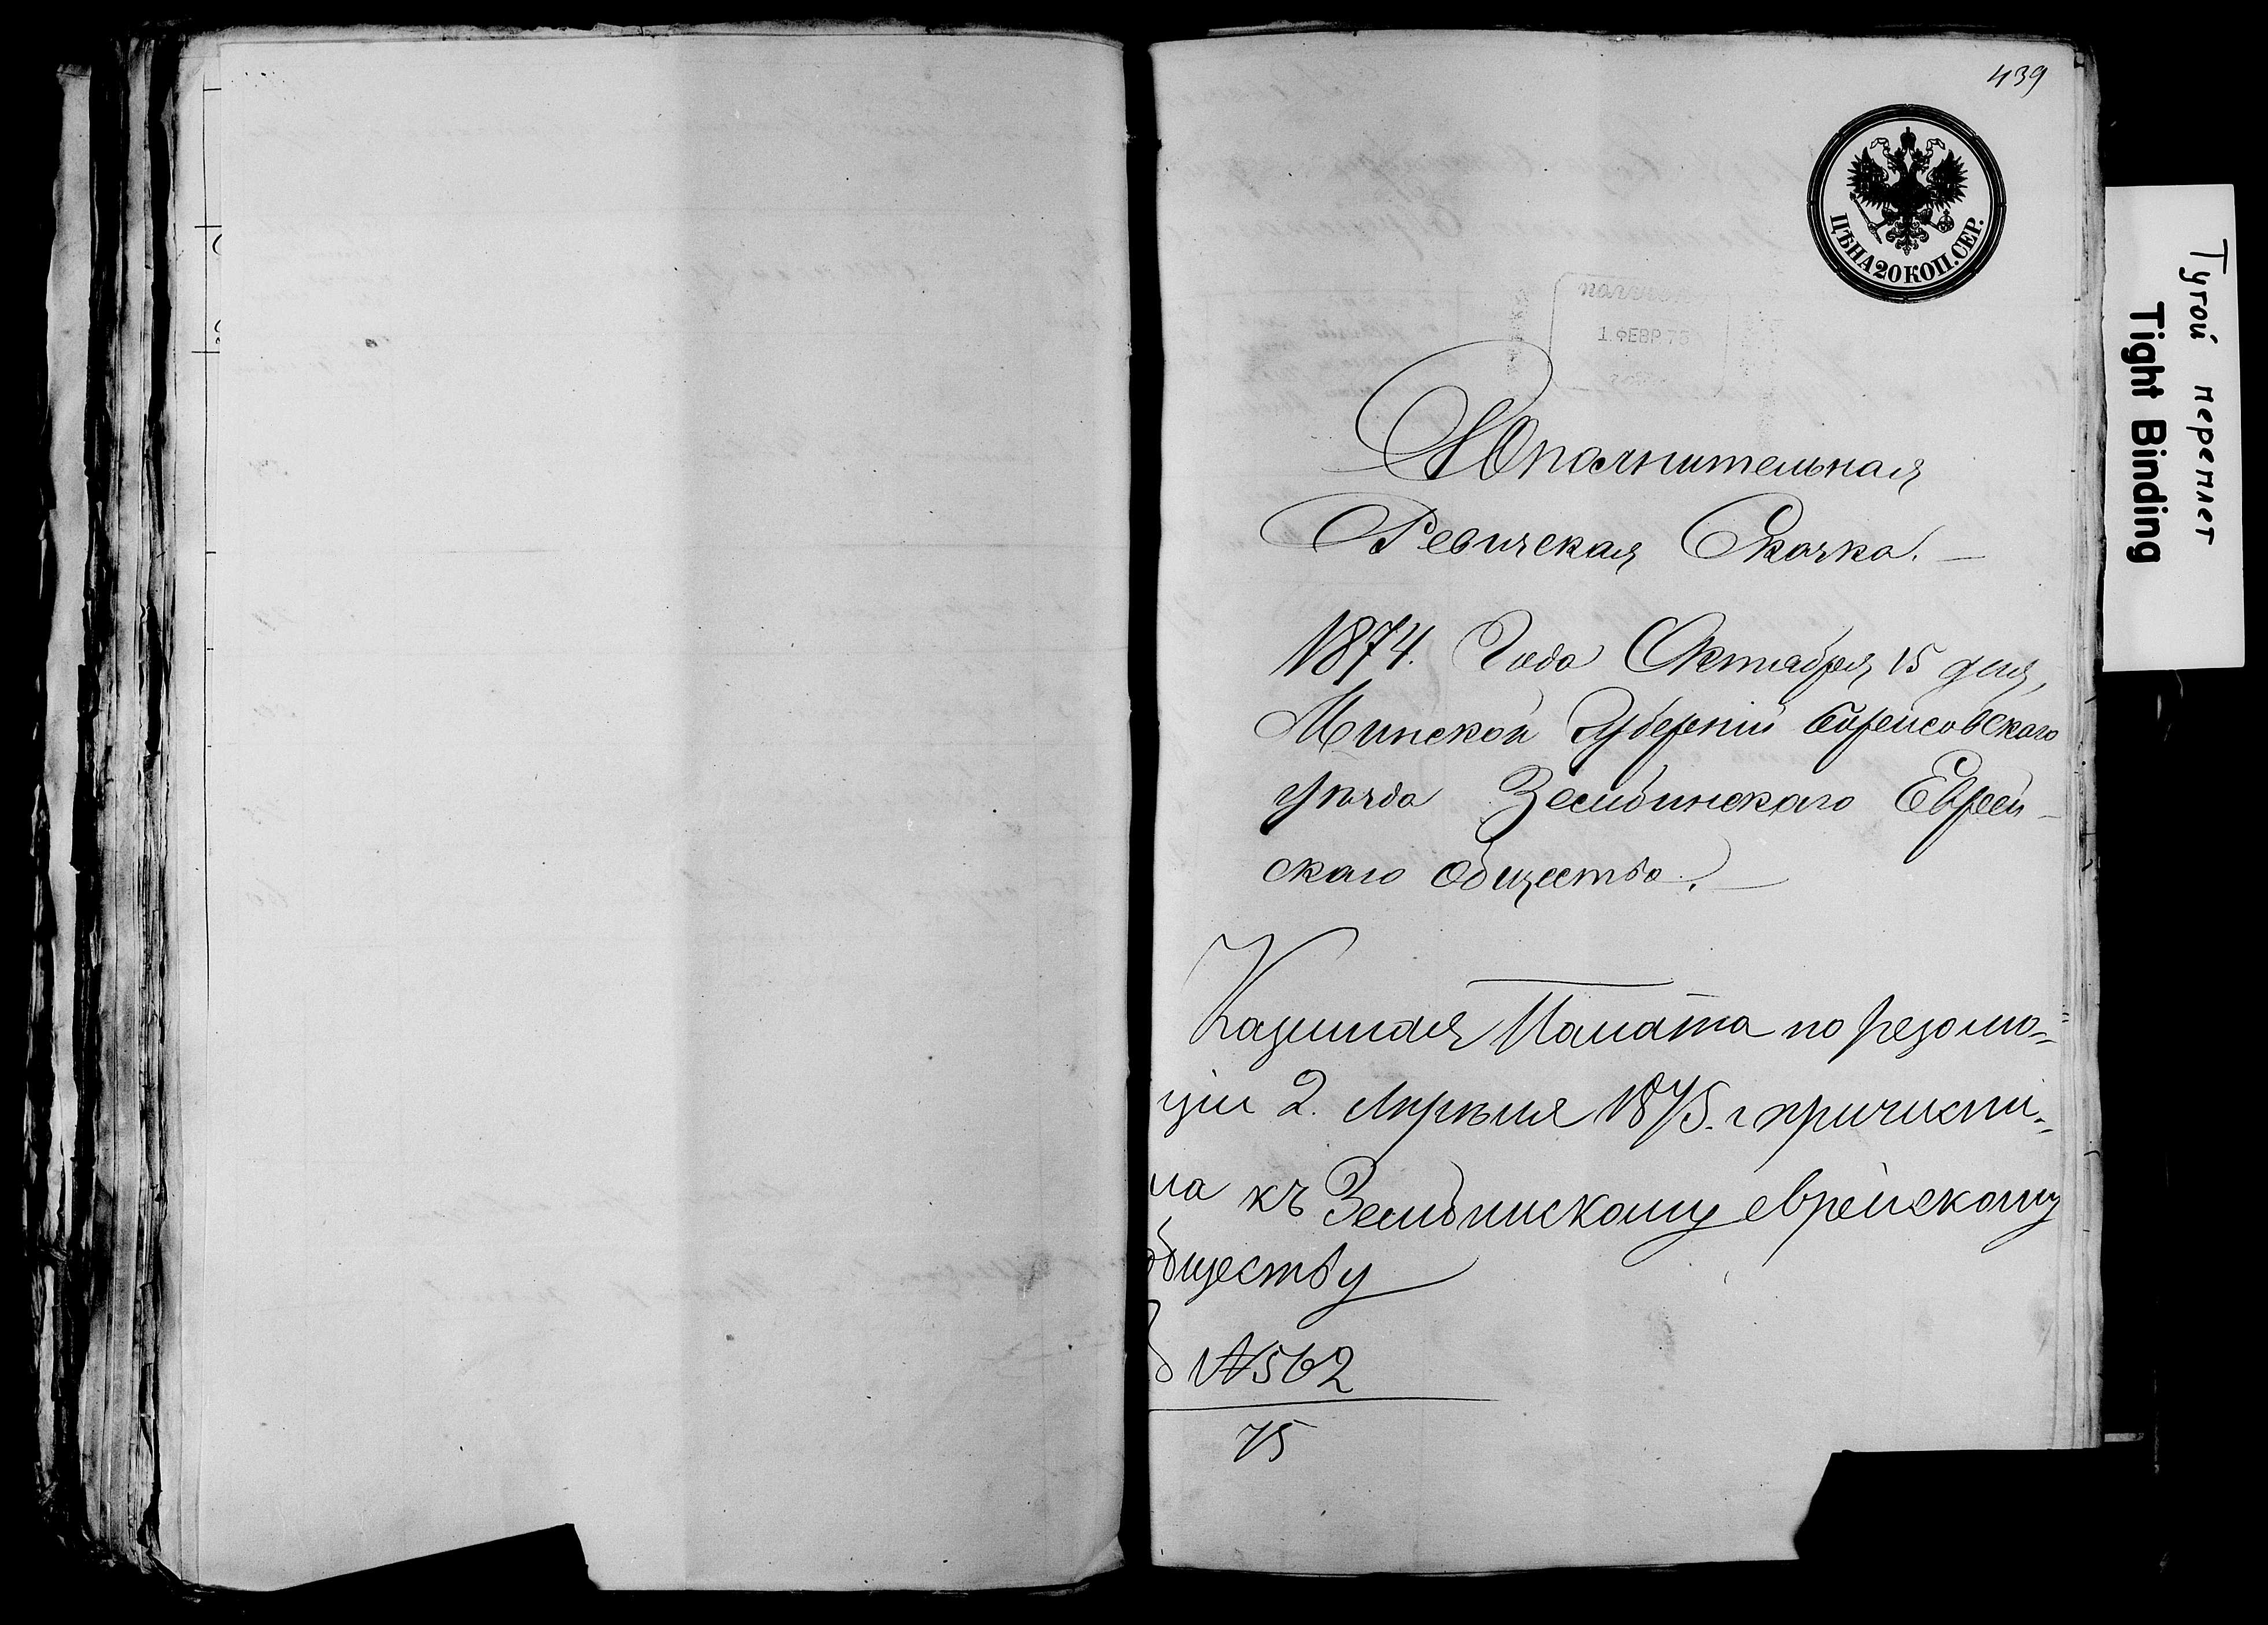 439
ЦѢНА 20 КОП. СЕР.
1 ФЕВР. 75
Дополнительная
Ревизская Сказка.
1874. Года Октября 15 дня,
Минской Губерніи Борисовскаго
уѣзда Зембинскаго Еврей-
скаго общества.
Казенная Палата по резолю-
ціи 2. Апрѣля 1875. г причисли-
ла къ Зембинскому еврейскому
обществу
№562
75
Тугой переплет
Tight Binding